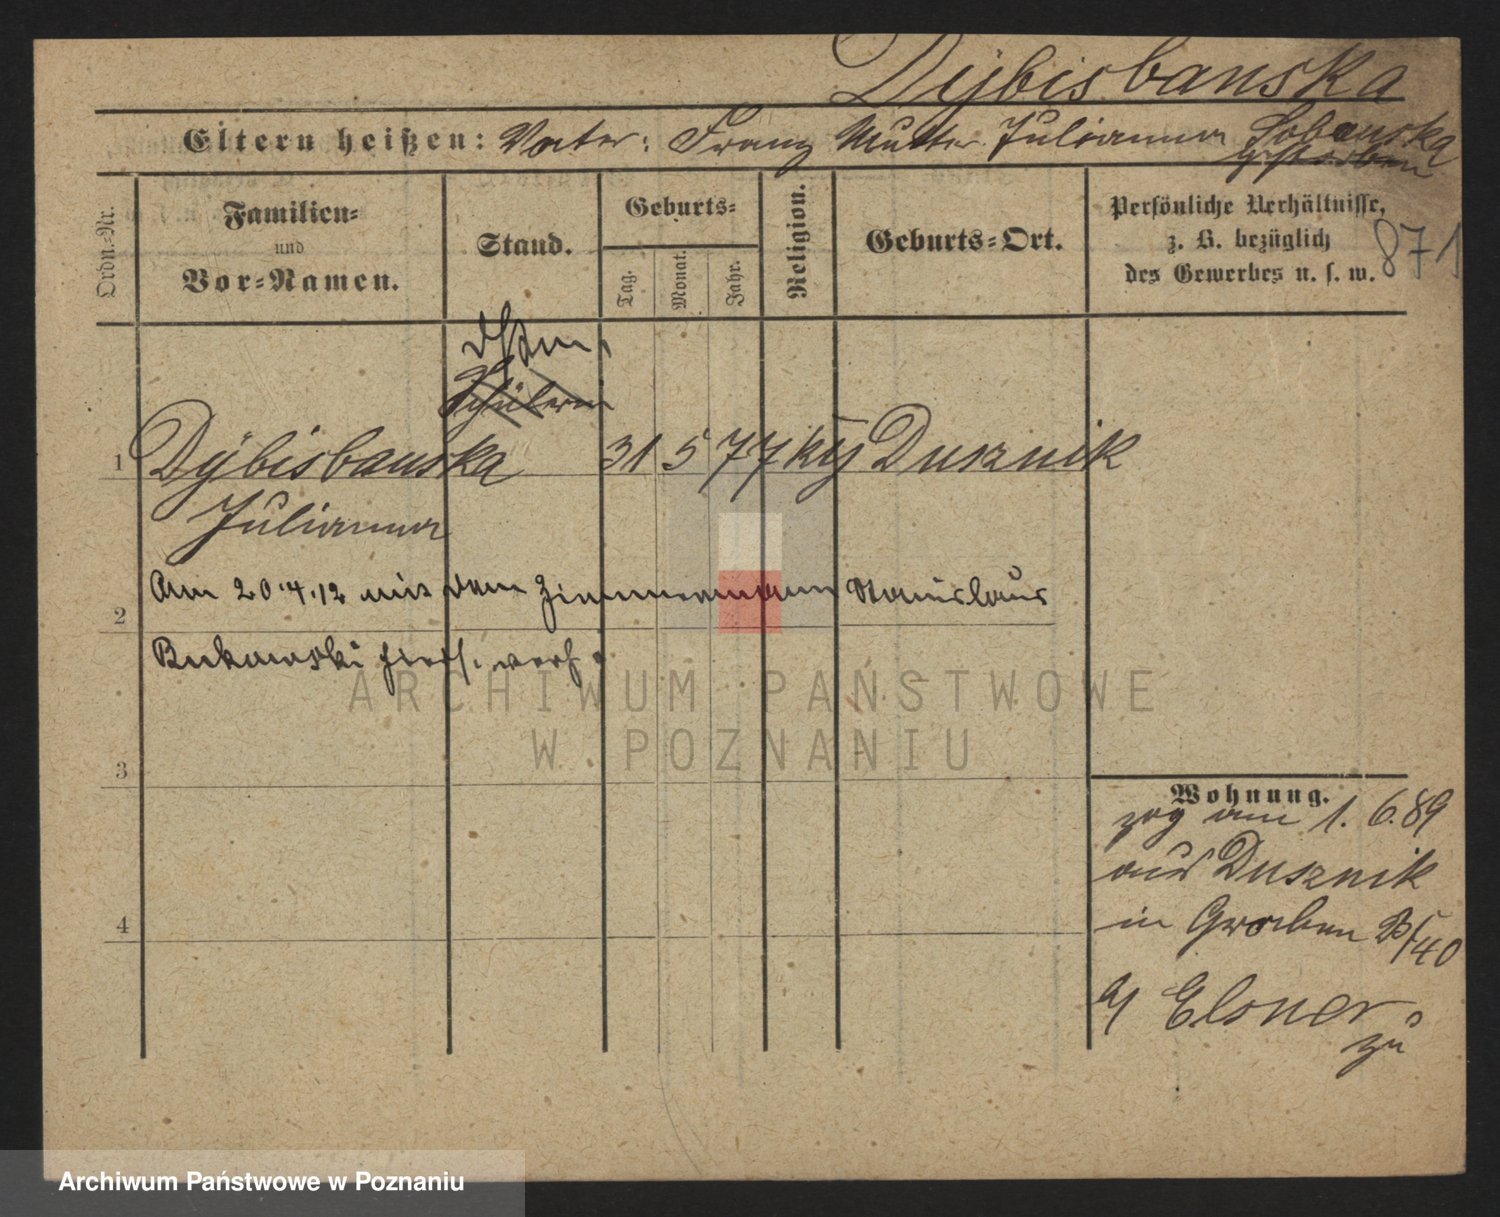 Dÿbisbanska
Eltern heißen: Vater: Franz Mutter Julianna Sobanska
gestorben
Ordn.-Nr.
Familien-
und
Vor-Namen.
Stand.
Geburts-
Tag.
Monat.
Jahr.
Religion.
Geburts-Ort.
Persönliche Verhältnisse,
z. B. bezüglich
des Gewerbes u. s. w.
871
Schülerin
1 Dÿbisbanska 31 5 77 kg Dusznik
Julianna
2 Am 20.4.12 mit dem Zimmermann Stanislaus
Bukowski hiers. verh.
3
4
Wohnung.
zog am 1. 6. 89
aus Dusznik
in Graben 25/40
b/ Elsner
zu
ARCHIWUM PAŃSTWOWE
W POZNANIU
Archiwum Państwowe w Poznaniu